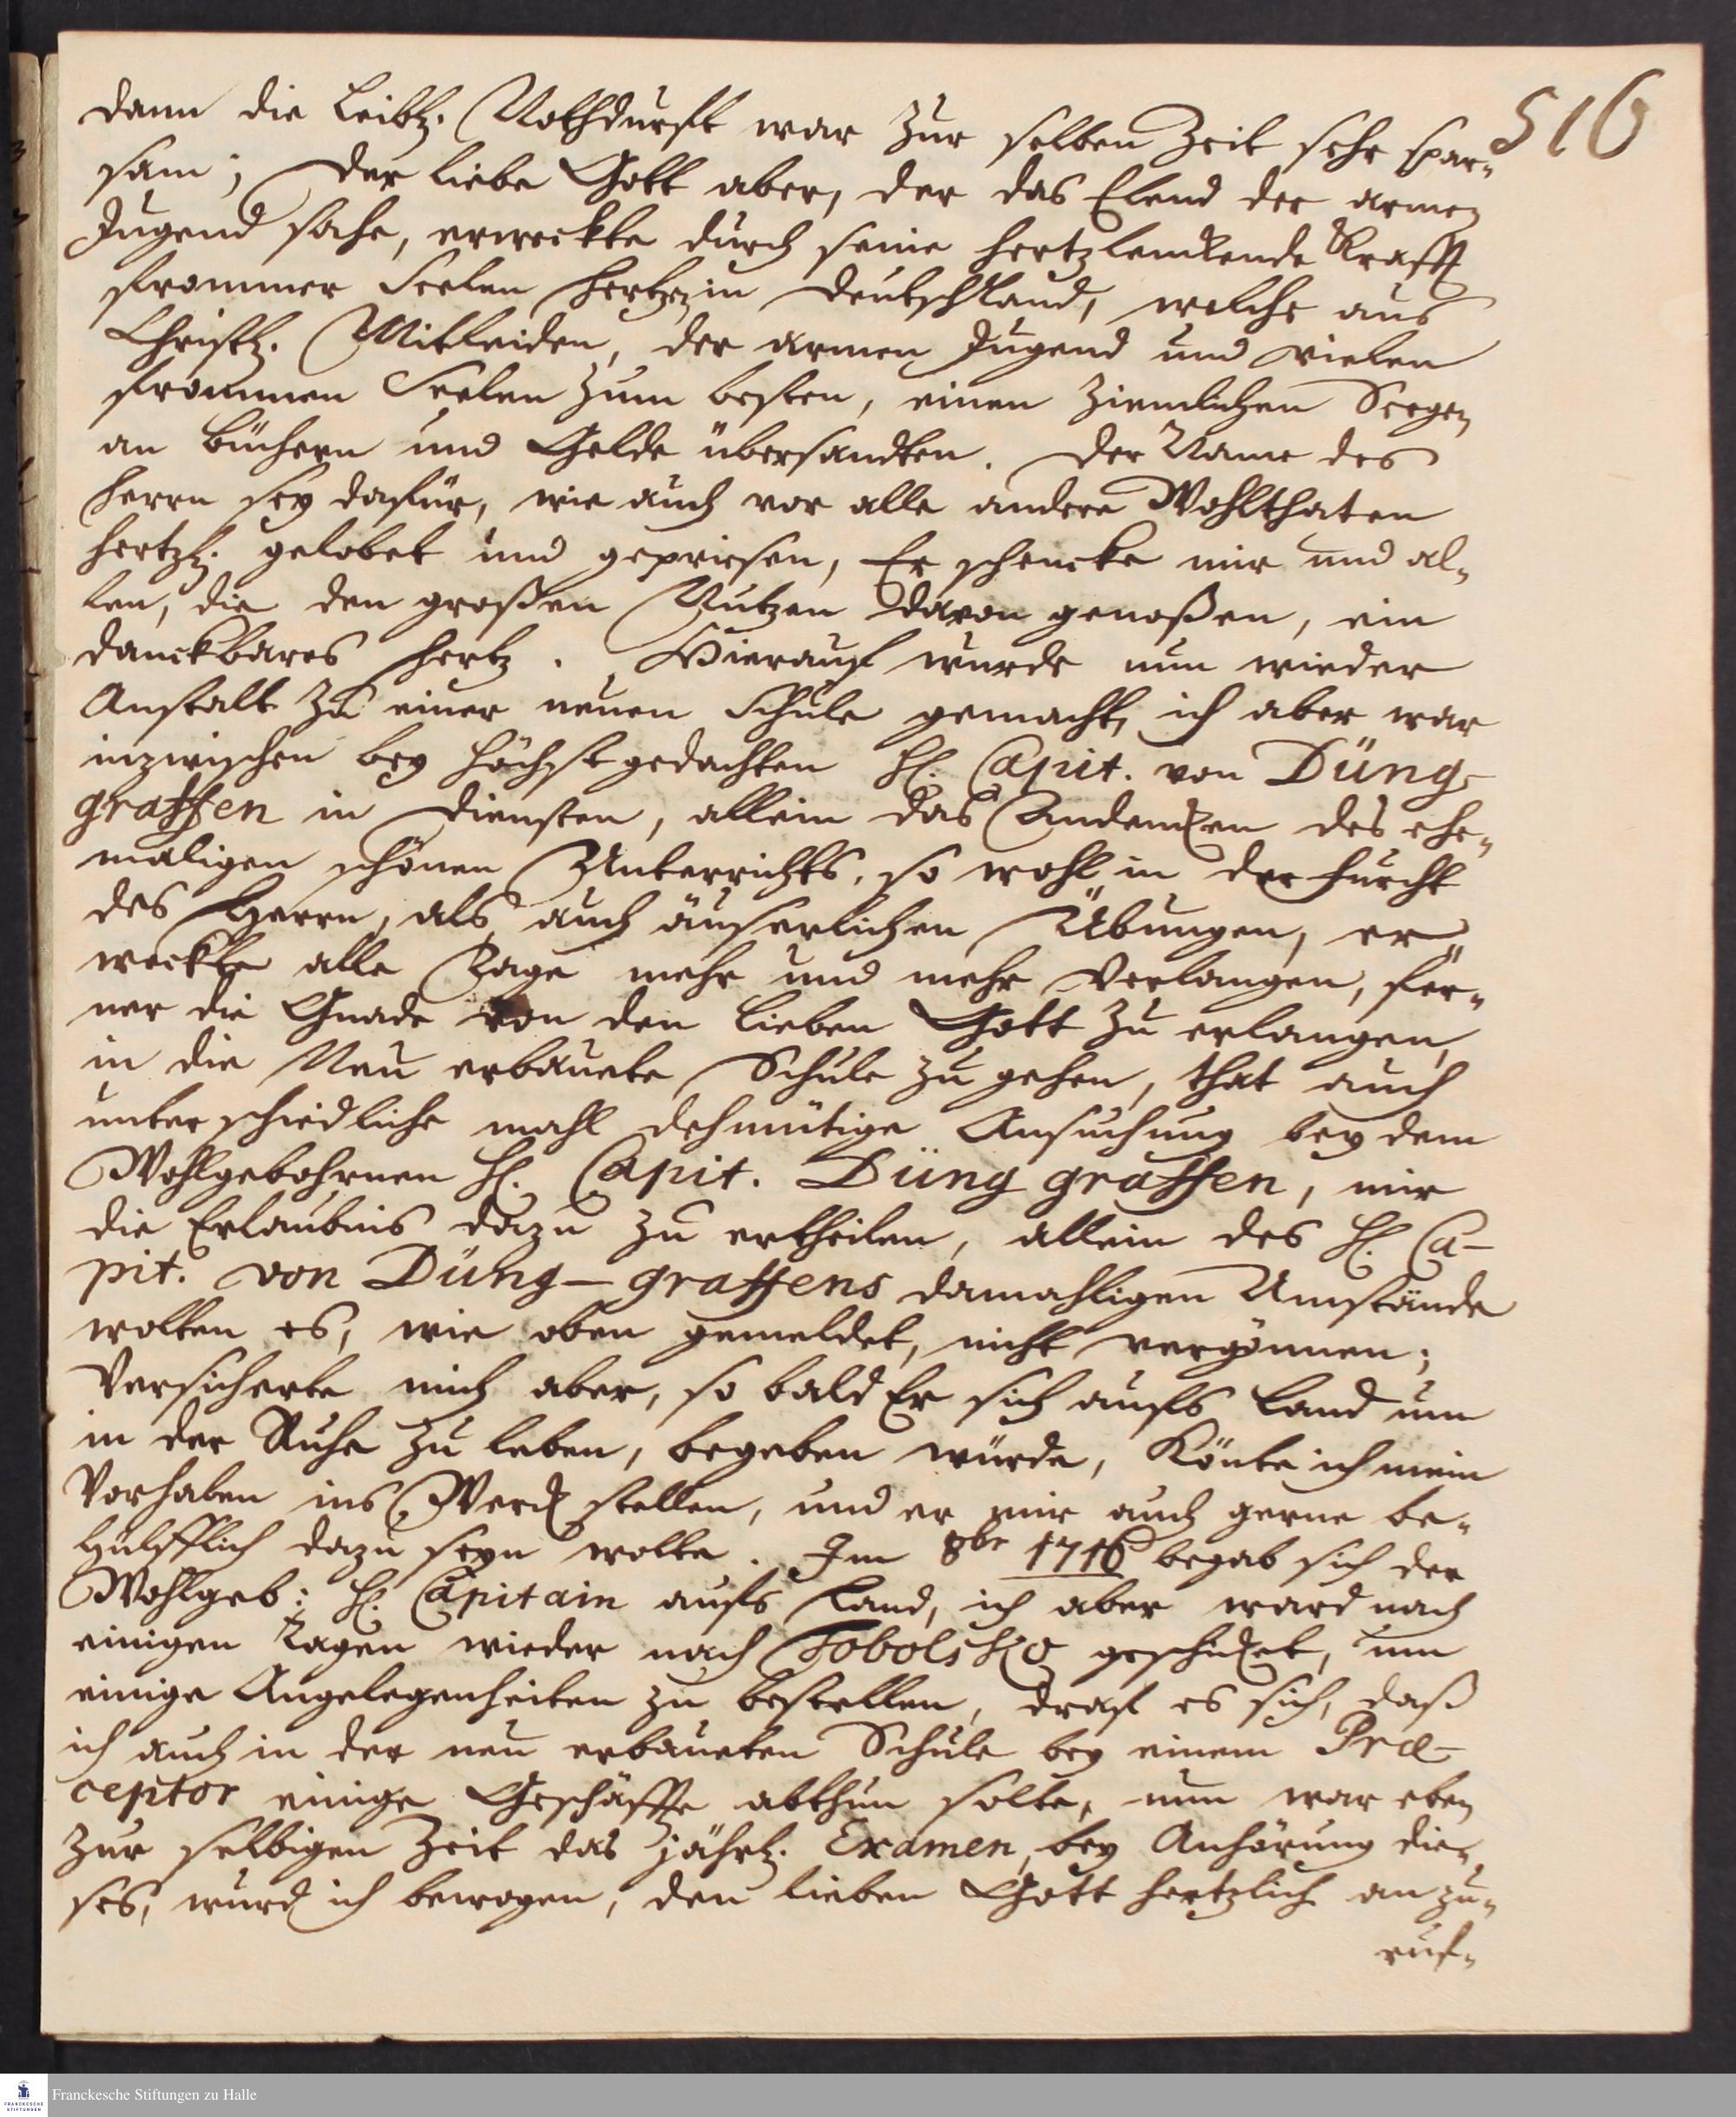 516
dann die Leibl. Nothdurft war zur selben Zeit sehr spar-
sam; Der liebe Gott aber, der das Elend der armen
Jugend sahe, erweckte durch seine hertzlenckende Krafft
frommer Seelen Hertzen in Deutschland, welche aus
Christl. Mitleiden, der armen Jugend und vielen
frommen Seelen zum besten, einen ziemlichen Seegen
an Büchern und Gelde übersandten. Der Name des
Herrn sey dafür, wie auch vor alle andere Wohlthaten
hertzl. gelobet und gepriesen, Er schencke mir und al-
len, die den großen Nutzen davon genoßen, ein
danckbares Hertz. Hierauf wurde nun wieder
Anstalt zu einer neuen Schule gemacht, ich aber war
inzwischen bey höchstgedachten H. Capit. von Düng-
graffen in Diensten, allein das Andencken des ehe-
maligen schönen Unterrichts, so wohl in der Furcht
des Herrn, als auch äuserlichen Übungen, er-
weckte alle Tage mehr und mehr Verlangen, fer-
ner die Gnade von den lieben Gott zu erlangen,
in die Neu erbauete Schule zu gehen, that auch
unterschiedliche mahl dehmütige Ansuchung bey dem
Wohlgebohrnen H. Capit. Düng graffen, mir
die Erlaubnis dazu zu ertheilen, allein des H. Ca-
pit. von Düng-graffens damahligen Umstände
wolten es, wie oben gemeldet, nicht vergönnen;
Versicherte mich aber, so bald Er sich aufs Land um
in der Ruhe zu leben, begeben würde, könte ich mein
Vorhaben ins Werck stellen, und er mir auch gerne be-
hülfflich dazu seyn wolte. Im 8br 1716 begab sich der
Wohlgeb: H. Capitain aufs Land, ich aber ward nach
einigen Tagen wieder nach Tobolsko geschicket, um
einige Angelegenheiten zu bestellen, draf es sich, daß
ich auch in der neu erbaueten Schule bey einem Præ-
ceptor einige Geschäffte abthun solte, nun war eben
zur selbigen Zeit das jährl. Examen, bey Anhörung die-
ses, wurd ich bewogen, den lieben Gott hertzlich anzu-
ruf-
Franckesche Stiftungen zu Halle
FRANCKESCHE
STIFTUNGEN